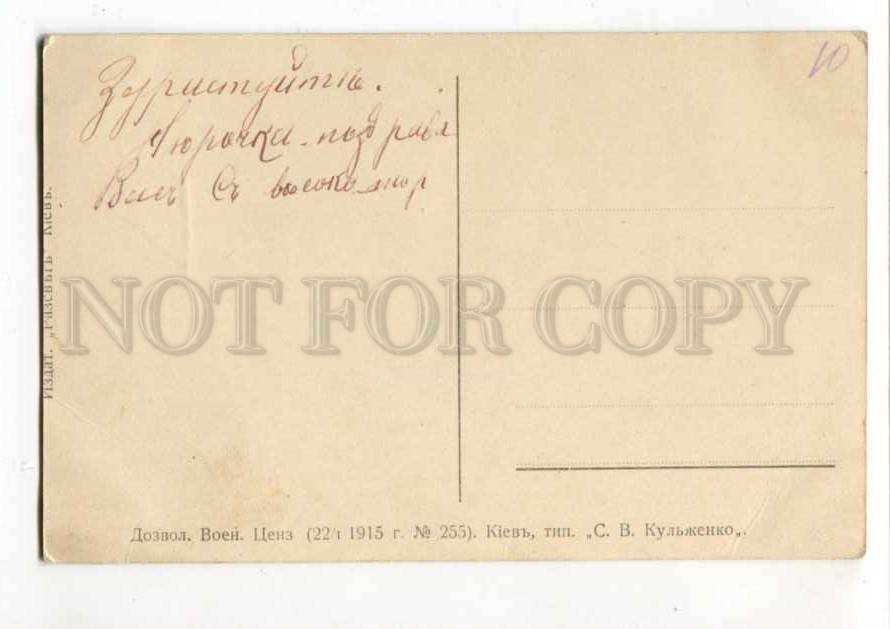 Здриступйте.
Нюрочка поздравл
Васъ Съ высоко тор
10
Издат. „Разсвѣтъ" Кіевъ.
NOT FOR COPY
Дозвол. Воен. Ценз (22/I 1915 г. № 255). Кіевъ, тип. „С. В. Кульженко„.